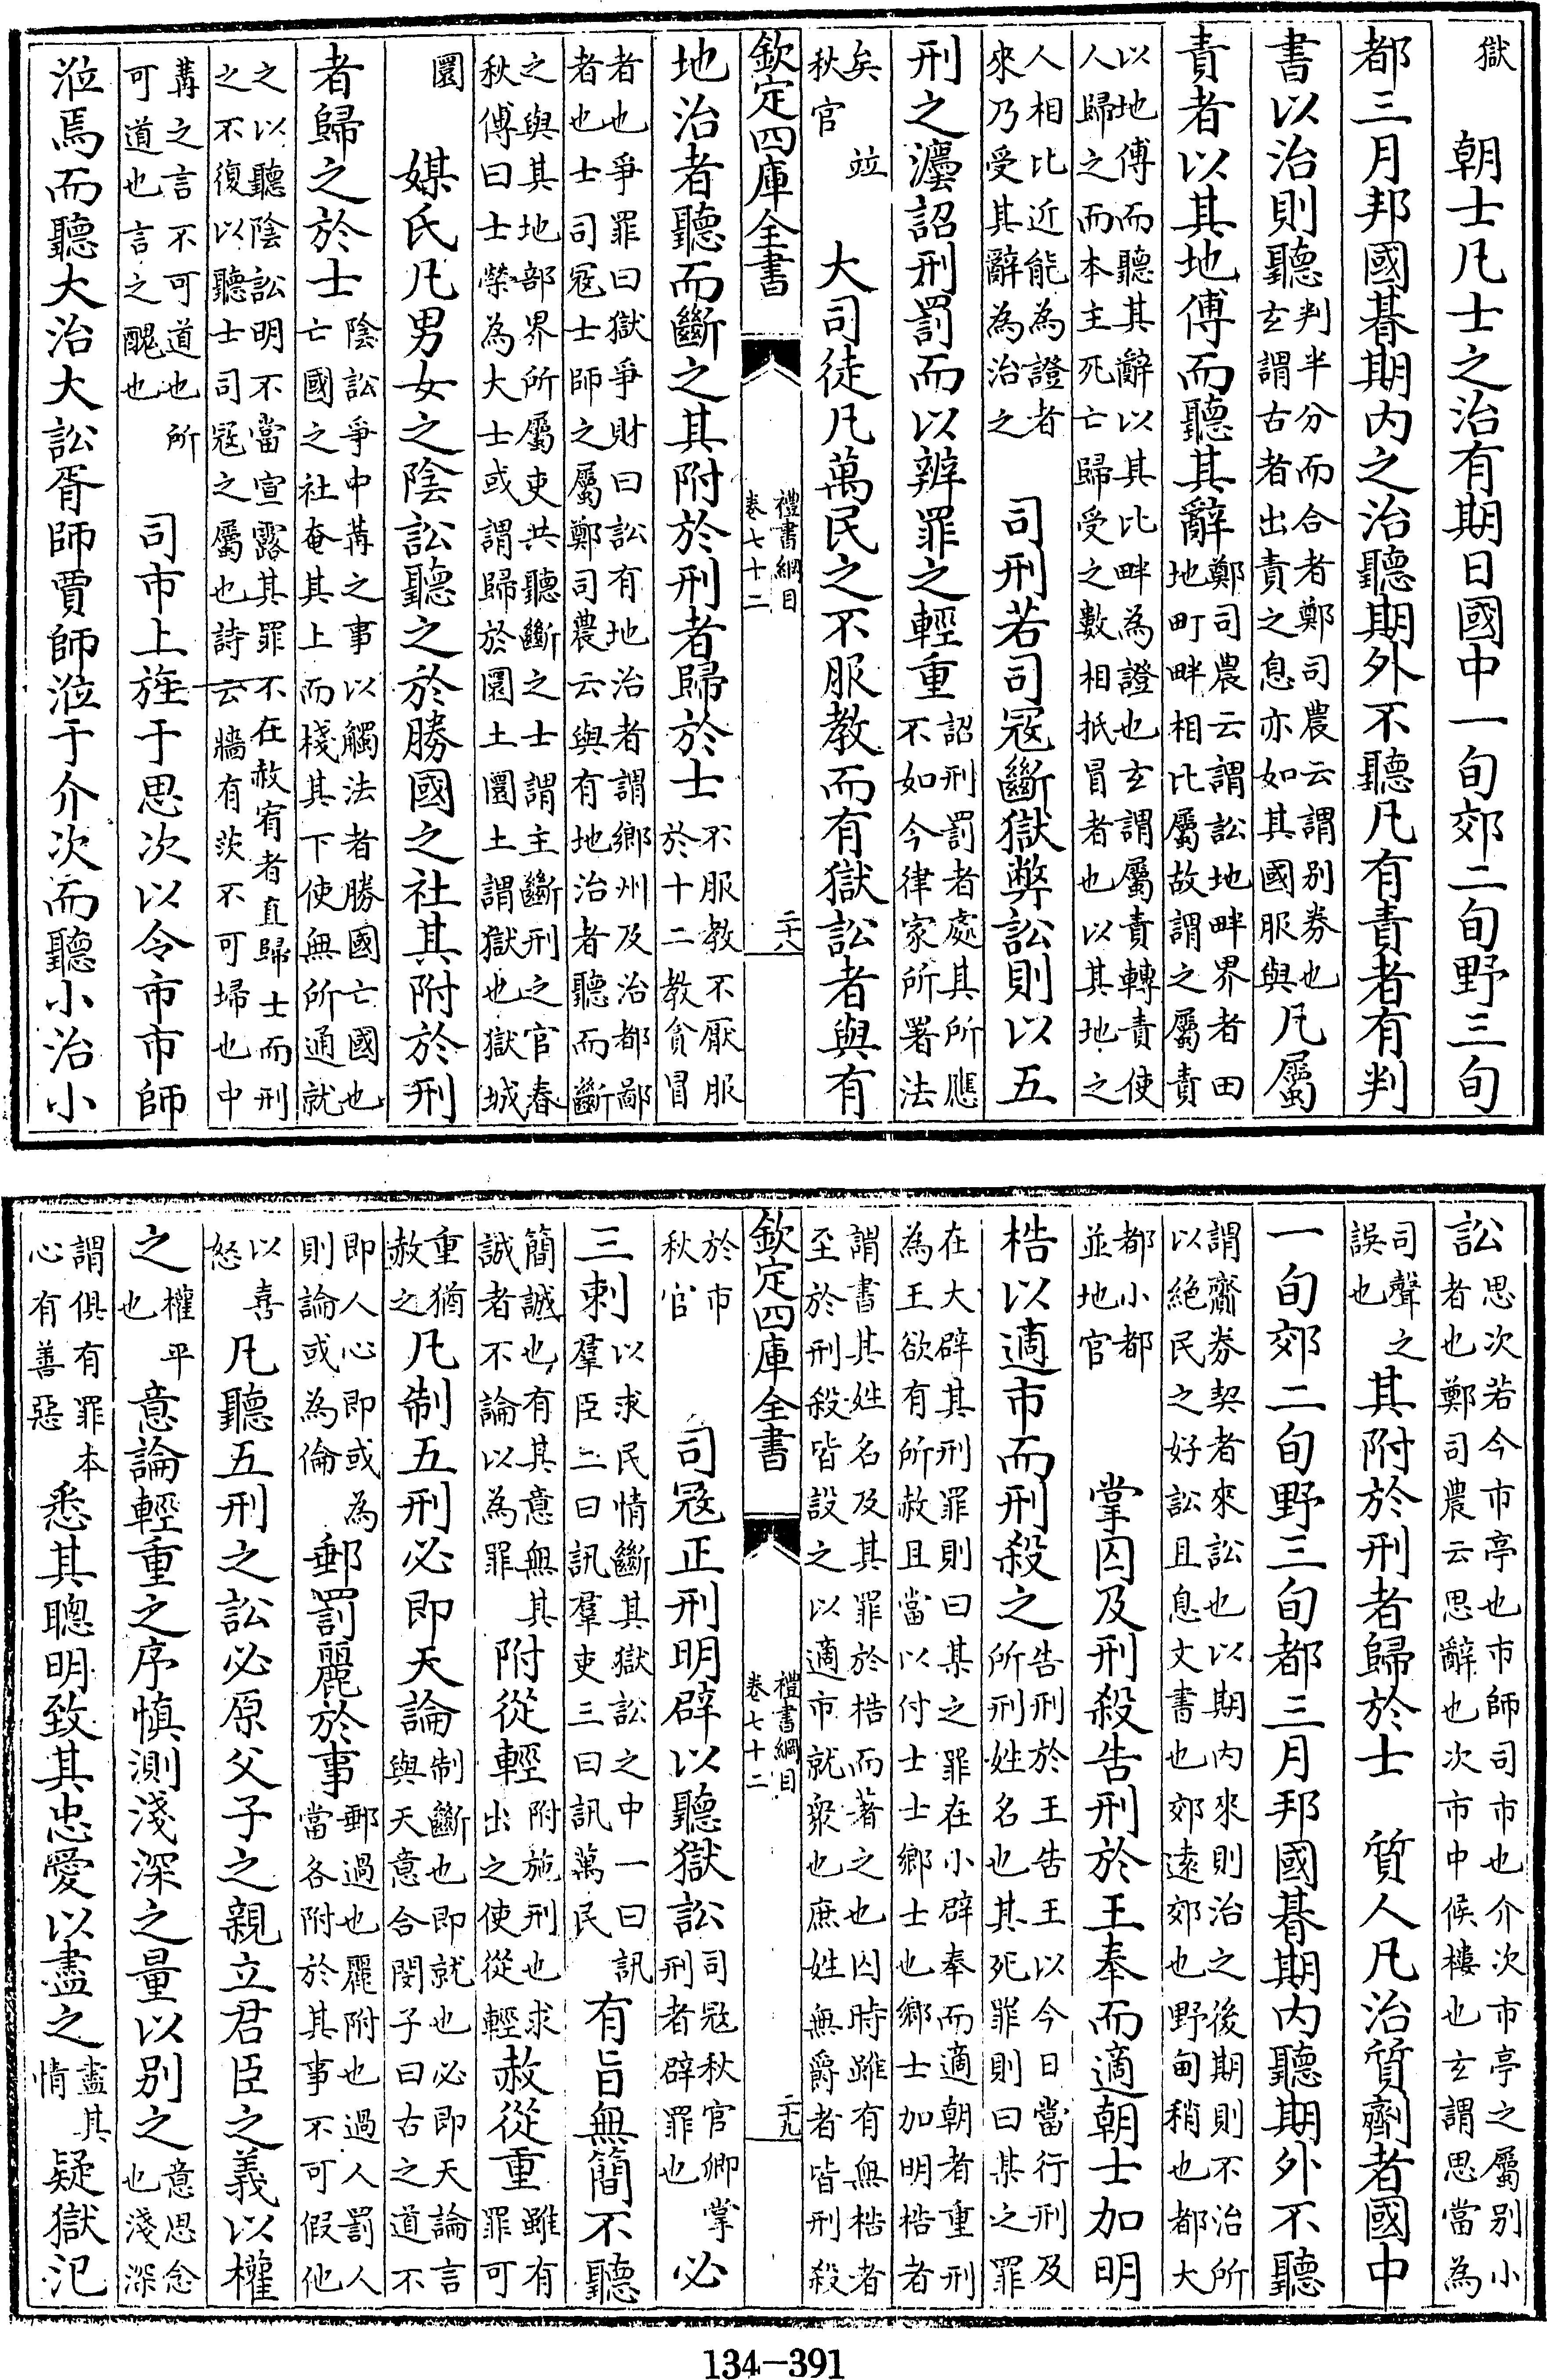 獄朝士凡士之治有期日國中一旬郊二旬野三旬
都三月邦國朞期內之治聽期外不聽凡有責者有判
書以治則聽判半分而合者鄭司農云謂别券也玄謂古者出責之息亦如其國服與凡屬
責者以其地傅而聽其辭鄭司農云謂訟地畔界者田地町畔相比屬故謂之屬責
以地傅而聽其辭以其比畔為證也玄謂屬責轉責使人歸之而本主死亡歸受之數相抵冒者也以其地之
人相比近能為證者來乃受其辭為治之司刑若司冦斷獄弊訟則以五
刑之灋詔刑罰而以辨罪之輕重詔刑罰者處其所應不如今律家所署法
矣竝秋官大司徒凡萬民之不服教而有獄訟者與有
欽定四庫全書 禮書綱目卷七十二 二十八
地治者聽而斷之其附於刑者歸於士不服教不厭服於十二教貪冒
者也爭罪曰獄爭財曰訟有地治者謂鄉州及治都鄙者也士司冦士師之屬鄭司農云與有地治者聽而斷
之與其地部界所屬吏共聽斷之士謂主斷刑之官春秋傅曰士榮為大士或謂歸於圜土圜土謂獄也獄城
圜媒氏凡男女之陰訟聽之於勝國之社其附於刑
者歸之於士陰訟爭中冓之事以觸法者勝國亡國也亡國之社奄其上而棧其下使無所通就
之以聽陰訟明不當宣露其罪不在赦宥者直歸士而刑之不復以聽士司冦之屬也詩云牆有茨不可埽也中
冓之言不可道也所可道也言之醜也司市上旌于思次以令市市師
涖焉而聽大治大訟胥師賈師涖于介次而聽小治小
訟思次若今市亭也市師司市也介次市亭之屬别小者也鄭司農云思辭也次市中候樓也玄謂思當為
司聲之誤也其附於刑者歸於士質人凡治質劑者國中
一旬郊二旬野三旬都三月邦國朞期內聽期外不聽
謂齎券契者來訟也以期內來則治之後期則不治所以絕民之好訟且息文書也郊遠郊也野甸稍也都大
都小都並地官掌囚及刑殺告刑於王奉而適朝士加明
梏以適市而刑殺之告刑於王告王以今日當行刑及所刑姓名也其死罪則曰某之罪
在大辟其刑罪則曰某之罪在小辟奉而適朝者重刑為王欲有所赦且當以付士士鄉士也鄉士加明梏者
謂書其姓名及其罪於梏而著之也囚時雖有無梏者至於刑殺皆設之以適市就衆也庶姓無爵者皆刑殺
欽定四庫全書 禮書綱目卷七十二 二十九
於市秋官司冦正刑明辟以聽獄訟司冦秋官卿掌刑者辟罪也必
三刺以求民情斷其獄訟之中一曰訊羣臣二曰訊羣吏三曰訊萬民有旨無簡不聽
簡誠也有其意無其誠者不論以為罪附從輕附施刑也求出之使從輕赦從重雖有罪可
重猶赦之凡制五刑必即天論制斷也即就也必即天論言與天意合閔子曰古之道不
即人心即或為則論或為倫郵罰麗於事郵過也麗附也過人罰人當各附於其事不可假他
以喜怒凡聽五刑之訟必原父子之親立君臣之義以權
之權平也意論輕重之序慎測淺深之量以别之意思念也淺深
謂俱有罪本心有善惡悉其聰明致其忠愛以盡之盡其情疑獄汜
134-391